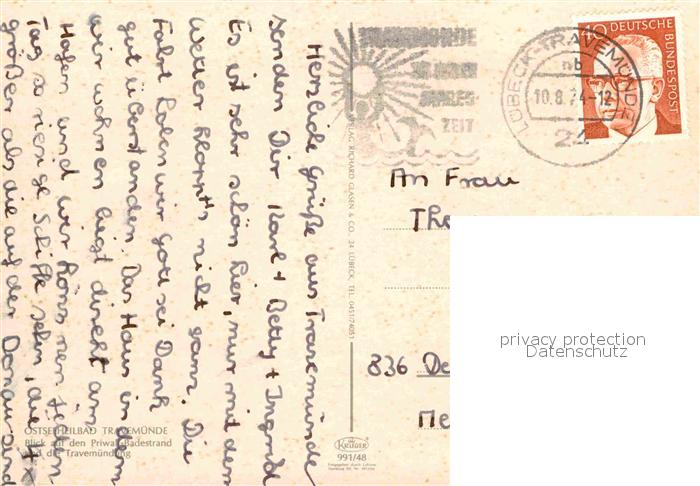 Herzliche Grüße aus Travemünde
senden Dir Karl + Betty + Ingrid
Es ist sehr schön hier, nur mit dem
Wetter klappts nicht ganz. Die
Fahrt haben wir Gott sei Dank
gut überstanden. Das Haus in dem
wir wohnen liegt direkt am
Hafen und wir können jeden
Tag so riesige Schiffe sehn, die 4x
größer als die auf der Donau sind
OSTSEEHEILBAD TRAVEMÜNDE
Blick auf den Priwall-Badestrand
und die Travemündung
VERLAG RICHARD GLASEN & CO. 24 LÜBECK TEL. 0451/74051
KRÜGER
991/48
TRAVEMÜNDE
ZU JEDER
JAHRES-
ZEIT
LÜBECK-TRAVEMÜNDE
nb
10.8.74-12
24
40 DEUTSCHE
BUNDESPOST
An Frau
The
836 De
Me
privacy protection
Datenschutz